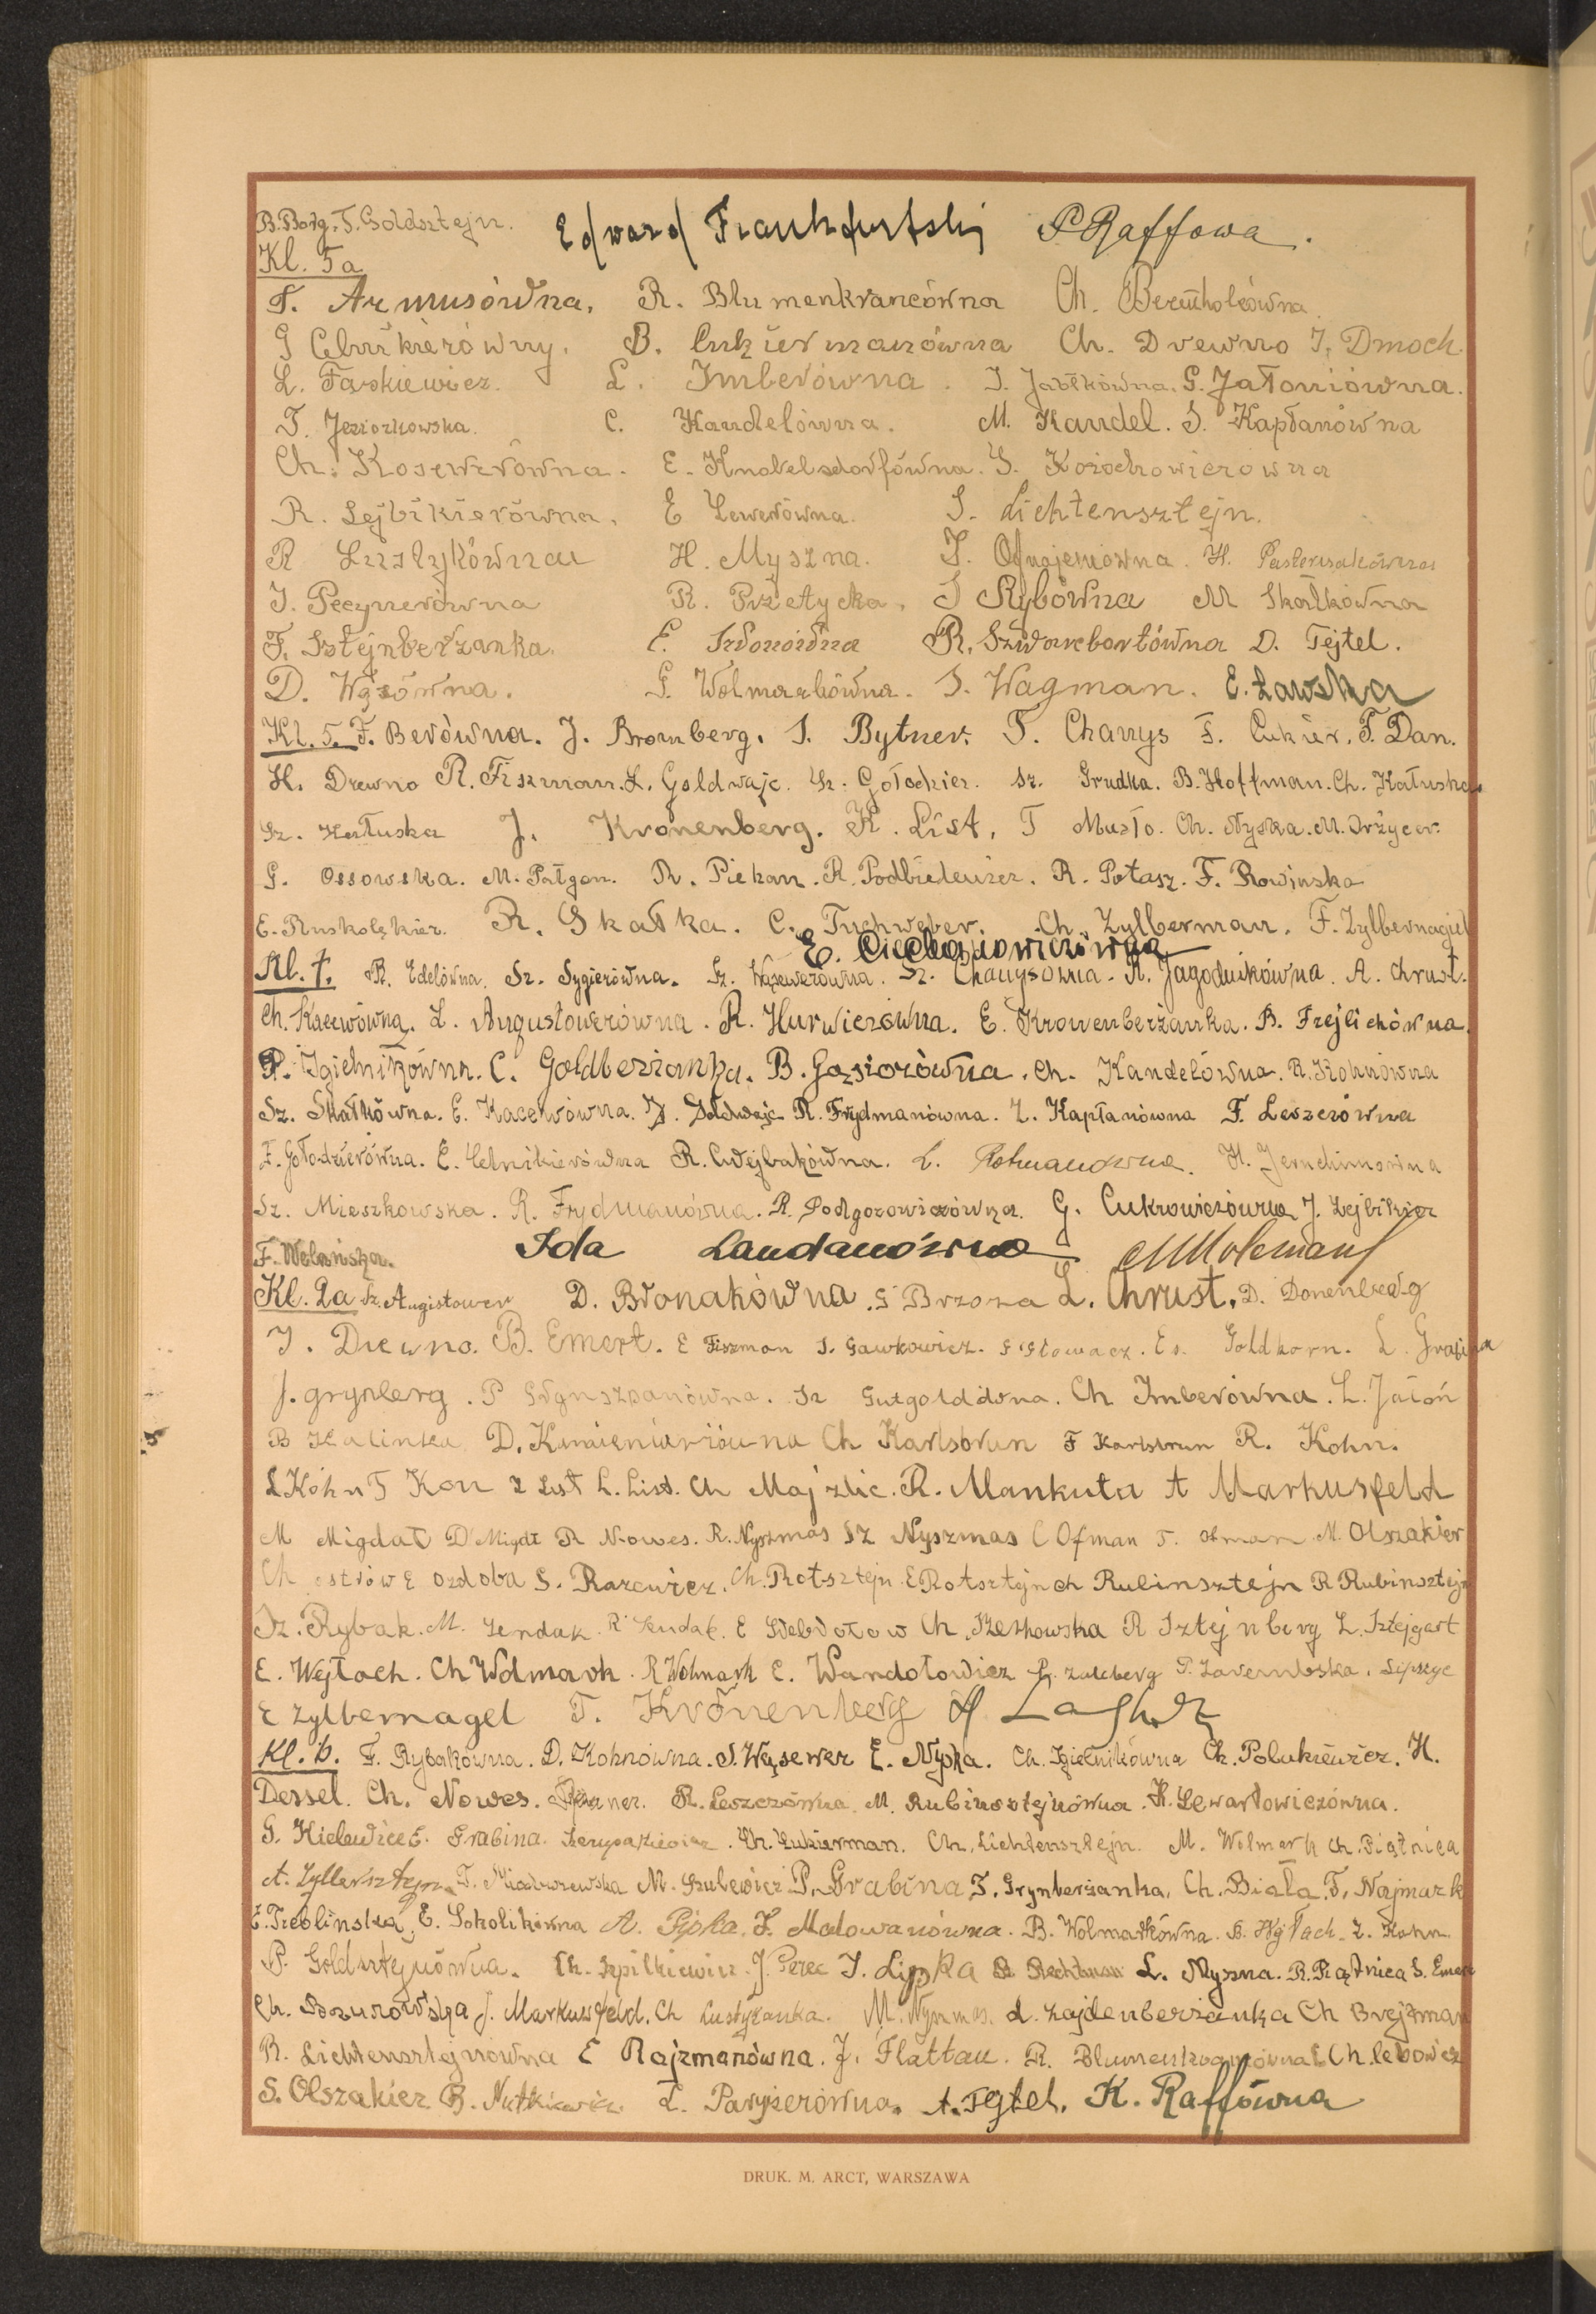 B. Borg. T. Goldsztejn. Edward Frankfurtski P Raffowa.
Kl. 5a
F. Armusówna. R. Blumenkrancówna Ch.
B. Cukiermanówna Ch. Drewno I. Dmoch.
L. Faskiewicz. L. Imberówna. I. Jabłkówna. G. Jałoniówna.
T. Jeziorkowska. C. Kandelówna. M. Kandel. S. Kapłanówna
Ch. Koserwerówna. E. Knobelsdorfówna. S.
R. Lejbikierówna. E Lewerówna. S. Lichtensztejn.
R H. Myszna. I. H.
I. Pecynerówna R. Przetycka. S Rybówna M Skałkówna
F. Sztejnberżanka. E. R. Szwarcbortówna D. Tejtel.
D. Wąsówna. G. Wolmarkówna. S. Wagman. E. Ławska
Kl. 5. F. Berówna. J. Bromberg. S. Bytner. F. Chanys F. Cukier. F. Dan.
H. Drewno R. Fiszman. L. Goldwajc. Sz. Gołockier. Sz. Grudka. B. Hoffman. Ch. Kałuska
Sz. Kałuska J. Kronenberg. R. List. T Musło. Ch. Nyska. M. Orżycer.
G. Ossowska. M. Pałgon. R. Piekar. R. Podbielewicz. R. Potasz. F. Rowinska
E. Ruskolękier. R. Skałka. C. Tuchweber. Ch. Zylberman. F. Zylbernagiel
E. Ciechanowiczówna
Kl. 7. R. Edelówna. Sz. Sygierówna. Sz. Wąsewerówna. Sz. Chanysówna. R. Jagodnikówna. A. Chrust.
Ch. Kacewówna. L. Augustowerówna. R. Hurwiczówna. E. Kronenberżanka. B. Frejlichówna.
P. Igielnikówna. C. Goldberżanka. B. Gąsiorówna. Ch. Kandelówna. R. Kohnówna
Sz. Skałkówna. E. Kacewówna. J. Goldwajc R. Frydmanówna. Z. Kapłanówna F. Leszczówna
F. Gołodzierówna. E. Celnikierówna R. Cwejbakówna. L. Rotmanówna. H. Jeruchimowna
Sz. Mieszkowska. R. Frydmanówna. R. Podgorowiczówna. G. Cukrowiczówna J. Lejbikier
F. Wolańska. Ida Landauówna
Kl. 2a Sz. Augistower D. Bronakówna. G Brzoza L. Chrust. D. Donenberg
I. Drewno. B. Emert. E Fiszman S. Gawkowicz. G Głowacz. Es. Goldkorn. L. Grabina
J. grynberg. P Grynszpanówna. Sz Gutgoldówna. Ch Imberówna. L. Jałoń
B Kalinka D. Kamieniarzówna Ch Karlsbrun F Karlsbrun R. Kohn.
L Kohn T Kon Z List L. List. Ch Majzlic. R. Mankuta A Markusfeld
M Migdał D Migdł R Nowes. R. Nyszmas SZ Nyszmas C Ofman T. Ofman M. Olszakier
Ch ostrów E ozdoba S. Razewicz. Ch. Rotsztejn E Rotsztejn ch Rubinsztejn R Rubinsztejn
Sz. Rybak. M. Sendak. R Sendak. E Ch. R Sztejnberg L. Sztejgart
E. Wejłach. Ch Wolmark. R Wolmark E. Wandołowicz
E Zylbernagel T. Kronenberg
Kl. b. F. Rybakówna. D. Kohnówna. S. Wąsewer E. Nyska. Ch. Igielnikówna Ch. Polukiewicz. H.
Dessel. Ch. Nowes. R. Leszczówna. M. Rubinsztejnówna. K. Lewartowiczówna.
G. Grabina. Ch. Cukierman. Ch. Lichtensztejn. M. Wolmark Ch. Piątnica
A. Zylbersztejn. T. M. Szulewicz P. Grabina I. Grynberżanka. Ch. Biała. F. Najmark
E. Treblinska. E. Sokolikówna A. F. Malowanówna. B. Wolmarkówna. B. Wejłach. Z. Kohn
P. Goldsztejnówna. Ch. Szpilkiewicz. J. Perec I. Lipska L. Myszna. R. Piątnica S. Emert
Ch. J. Markusfeld. Ch Lustyżanka. L. Zajdenberżanka Ch Brejzman
R. Lichtensztejnówna E Rajzmanówna. J. Flattau. R. Blumenkrancówna
S. Olszakier B. Nutkiewicz L. Paryżerówna. A. Tejtel. K. Raffówna
DRUK. M. ARCT, WARSZAWA